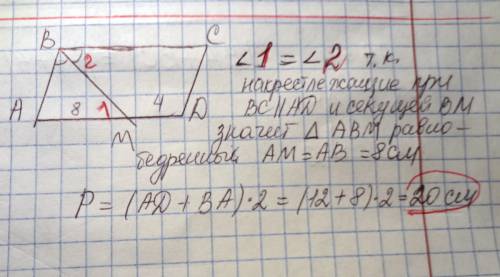 B C
2
∠1 = ∠2 т.к.
накрестлежащие при
A 8 1 4 D
BC || AD и секущей BM
M
значит △ ABM равно-
бедренный AM = AB = 8см
P = (AD + BA)·2 = (12 + 8)·2 = 20 см